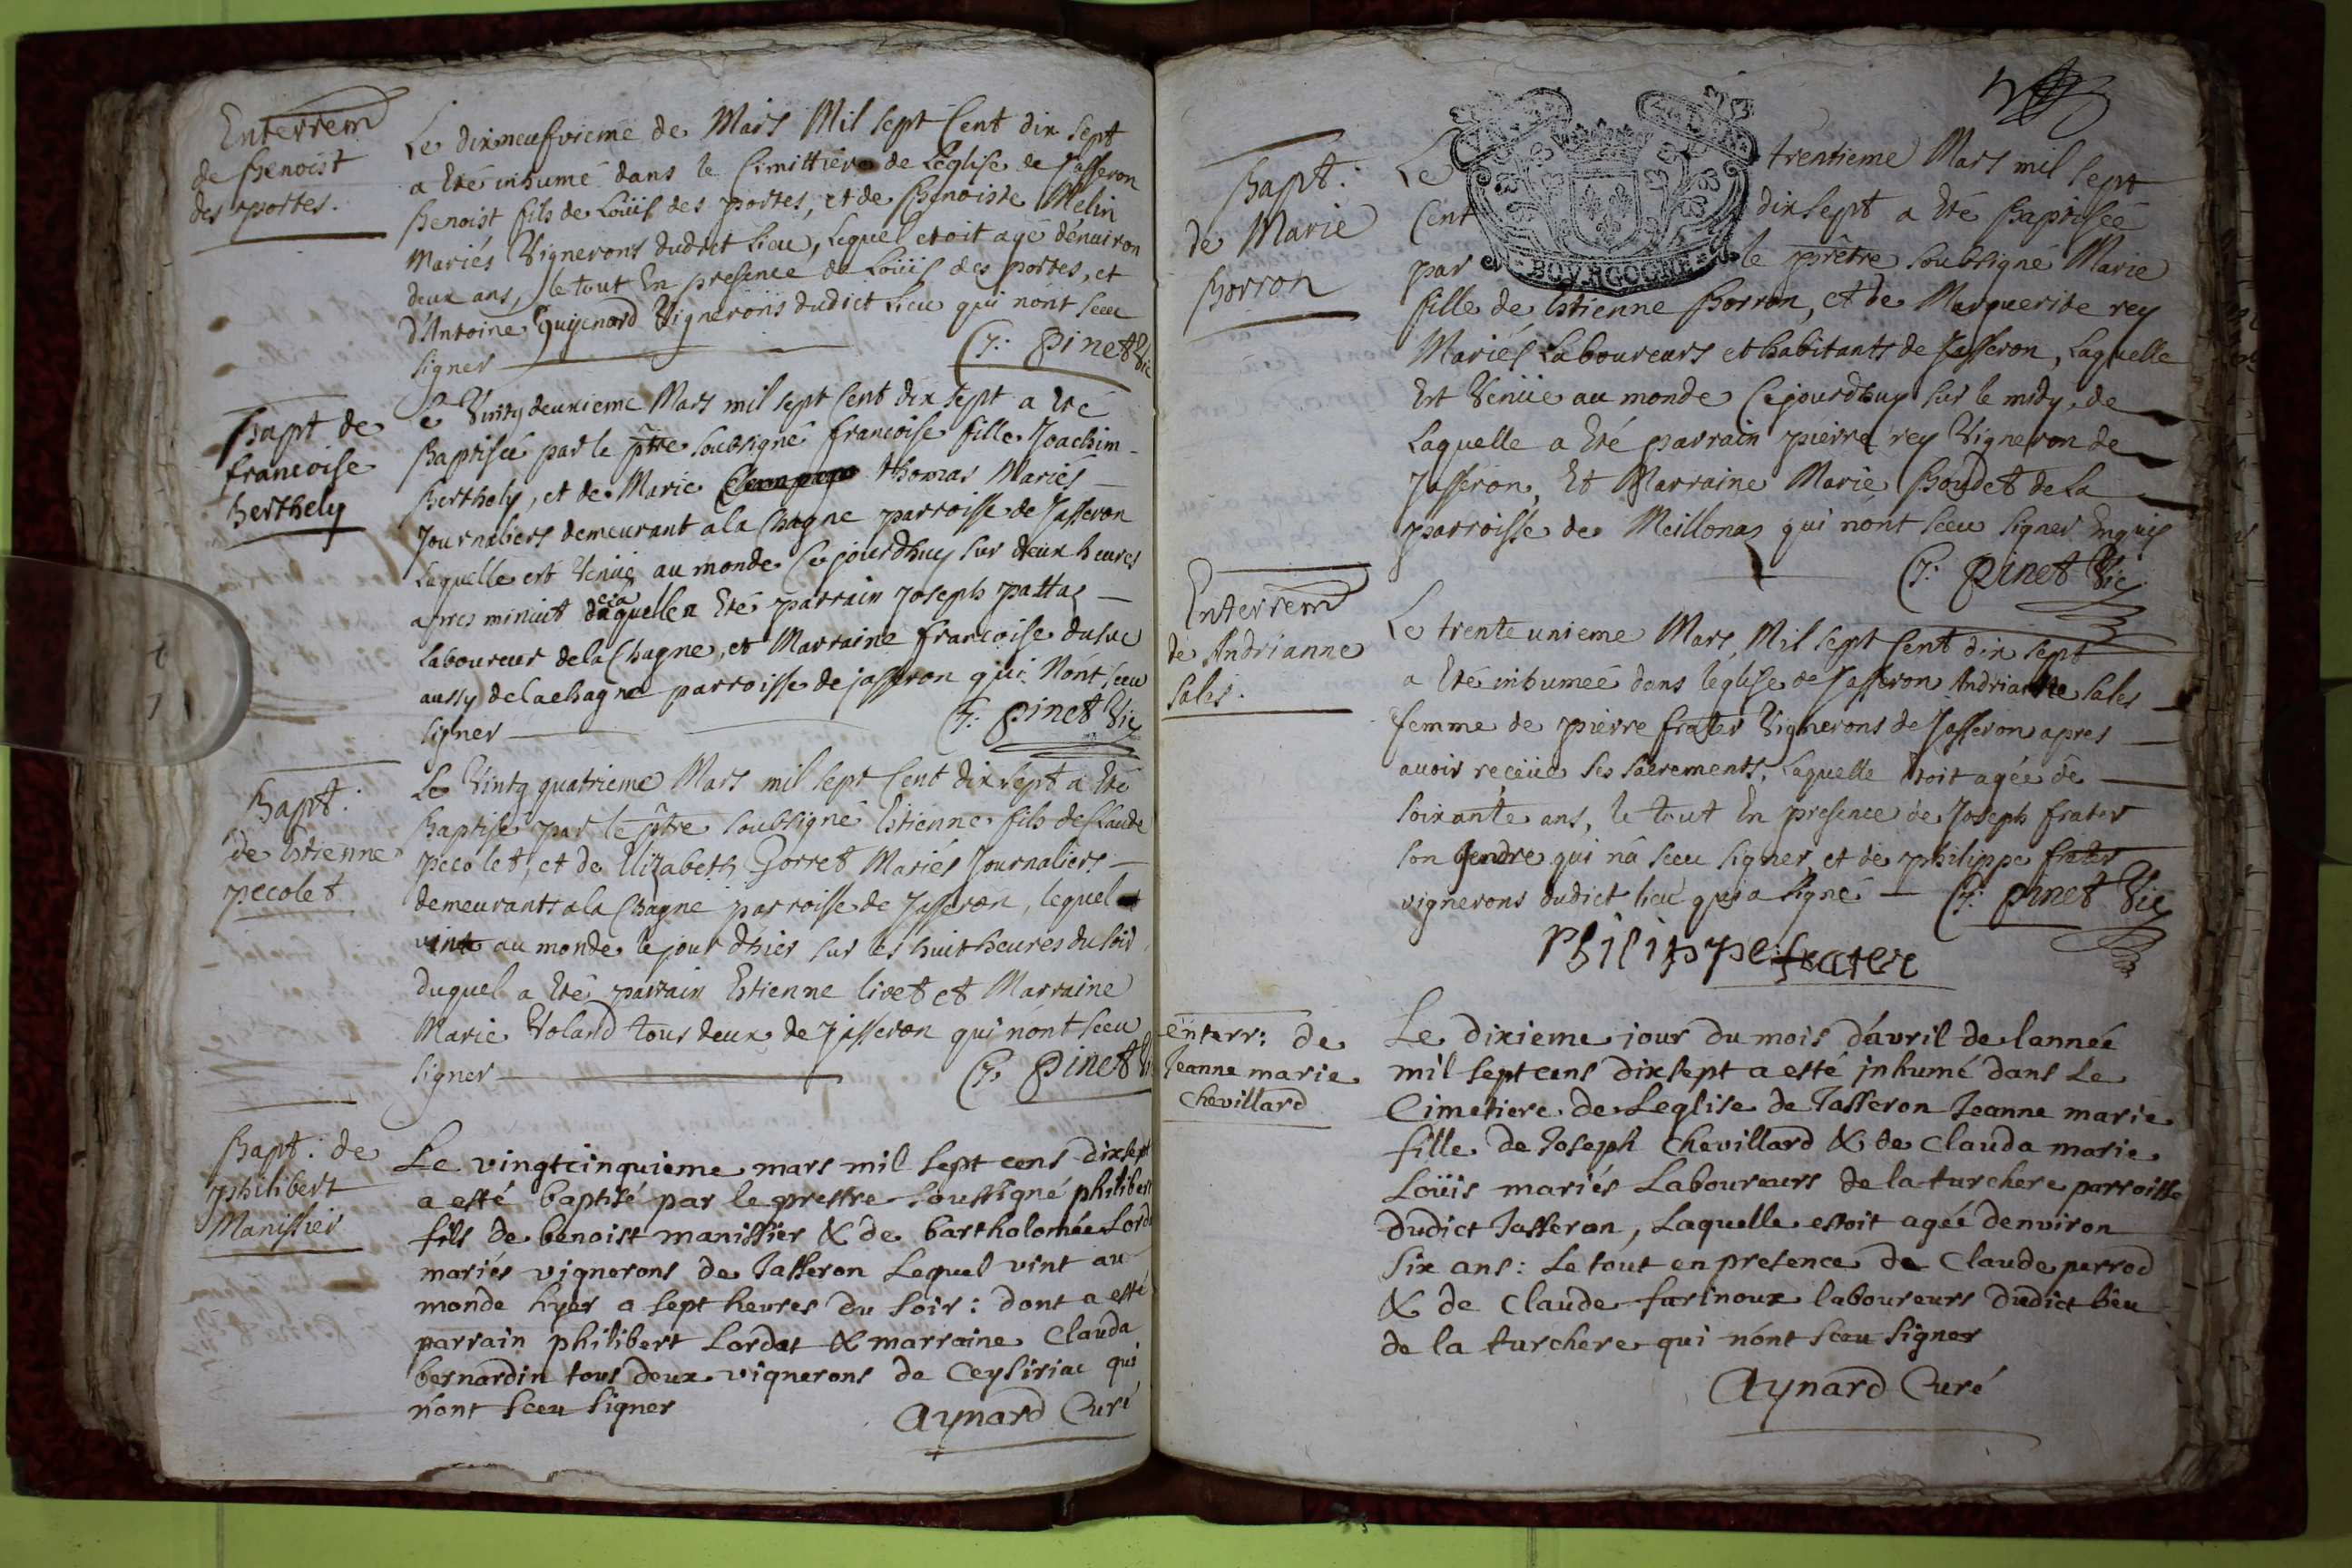 Enterrem
de Benoist
des portes.
Le dixneufvieme de Mars Mil sept Cent dix sept
a êté inhumé dans le Cimittiere de Leglise de Jasseron
Benoist fils de Loüis des portes, et de Benoiste Melin
Mariés Vignerons dudict Lieu, Lequel etoit agé dénuiron
deux ans, le tout En presence de Loüis des portes, et
d'Antoine Guijenard Vignerons dudict Lieu qui nónt sceu
signer
C. F: Pinet Vic
Bapt de
francoise
Berthely
Le Vinty deuxieme Mars mil sept Cent dix sept a êté
Baptisée par le ptre soubsigné francoise fille Joachim
Berthely, et de Marie thomas Mariés
Journaliers demeurant a la Chagne parroisse de Jasseron
Laquelle est Venüe au monde Cejourdhuy sur deux heures
apres minuit de laquelle a êté parrain Joseph pattaz
Laboureur de la Chagne, et Marraine francoise duluc
aussy de la chagne parroisse de jasseron qui Nónt sceu
signer
F: Pinet Vic
Bapt:
de Estienne
pecolet
Le Vintg quatrieme Mars mil sept Cent dix sept a êté
Baptise par le ptre soubsigné Estienne fils de Claude
pecolet, et de Elizabeth Gorret Mariés Journaliers
demeurants a la Chagne parroisse de Jasseron, lequel
vint au monde le jour d'hier sur les huit heures du soir
duquel a êté parrain Estienne livet et Marraine
Marie Voland tous deux de Jasseron qui nónt sceu
signer
F: Pinet
Bapt: de
philibert
Manissier
Le vingtcinquieme mars mil sept cens dixsept
a esté baptisé par le prestre soussigné philibert
fils de benoist manissier & de bartholomée Lord
mariés vignerons de Jasseron Lequel vint au
monde hyer a sept heures du soir: dont a esté
parrain philibert Lordet & marraine Clauda
bernardin tous deux vignerons de Ceysiriac qui
nónt sceu signer
Aynard Curé
Bapt:
de Marie
Borron
BOVRGOGNE
Le trentieme Mars mil sept
Cent dixsept a êté Baptisée
par le prêtre soubsigné Marie
fille de Estienne Borron, et de Marguerite rey
Mariés Laboureurs et habitants de Jasseron, Laquelle
Est Venüe au monde Cejourdhuy sur le midy, de
Laquelle a êté parrain pierre rey Vigneron de
Jasseron, Et Marraine Marie Boudet de La
parroisse de Meillonaz qui nont sceu signer Enquis
F: Pinet Vic
Enterrem
de Andrianne
Sales.
Le trente unieme Mars Mil sept Cent dix sept
a êté inhumeé dans léglise de Jasseron Andrianne Sales
femme de pierre frater Vignerons de Jasseron apres
auoir receüe ses sacrements, Laquelle êtoit agée de
soixante ans, le tout En presence de Joseph frater
son gendre qui nà sceu signer et de philippe frater
vignerons dudict lieu qui a signé
F: Pinet Vic
Philippe frater
Enterr: de
Jeanne marie
Chevillard
Le dixieme jour du mois d'avril de lanneé
mil sept cens dixsept a esté jnhumé dans Le
Cimetiere de Leglise de Jasseron Jeanne marie
fille de Joseph Chevillard & de Clauda marie
Loüis mariés Laboureurs de la turchere parroisse
dudict Jasseron, Laquelle estoit ageé denviron
six ans: Le tout en presence de Claude perrod
& de Claude farinoux laboureurs dudict lieu
de la turchere qui nónt sceu signer
Aynard Curé